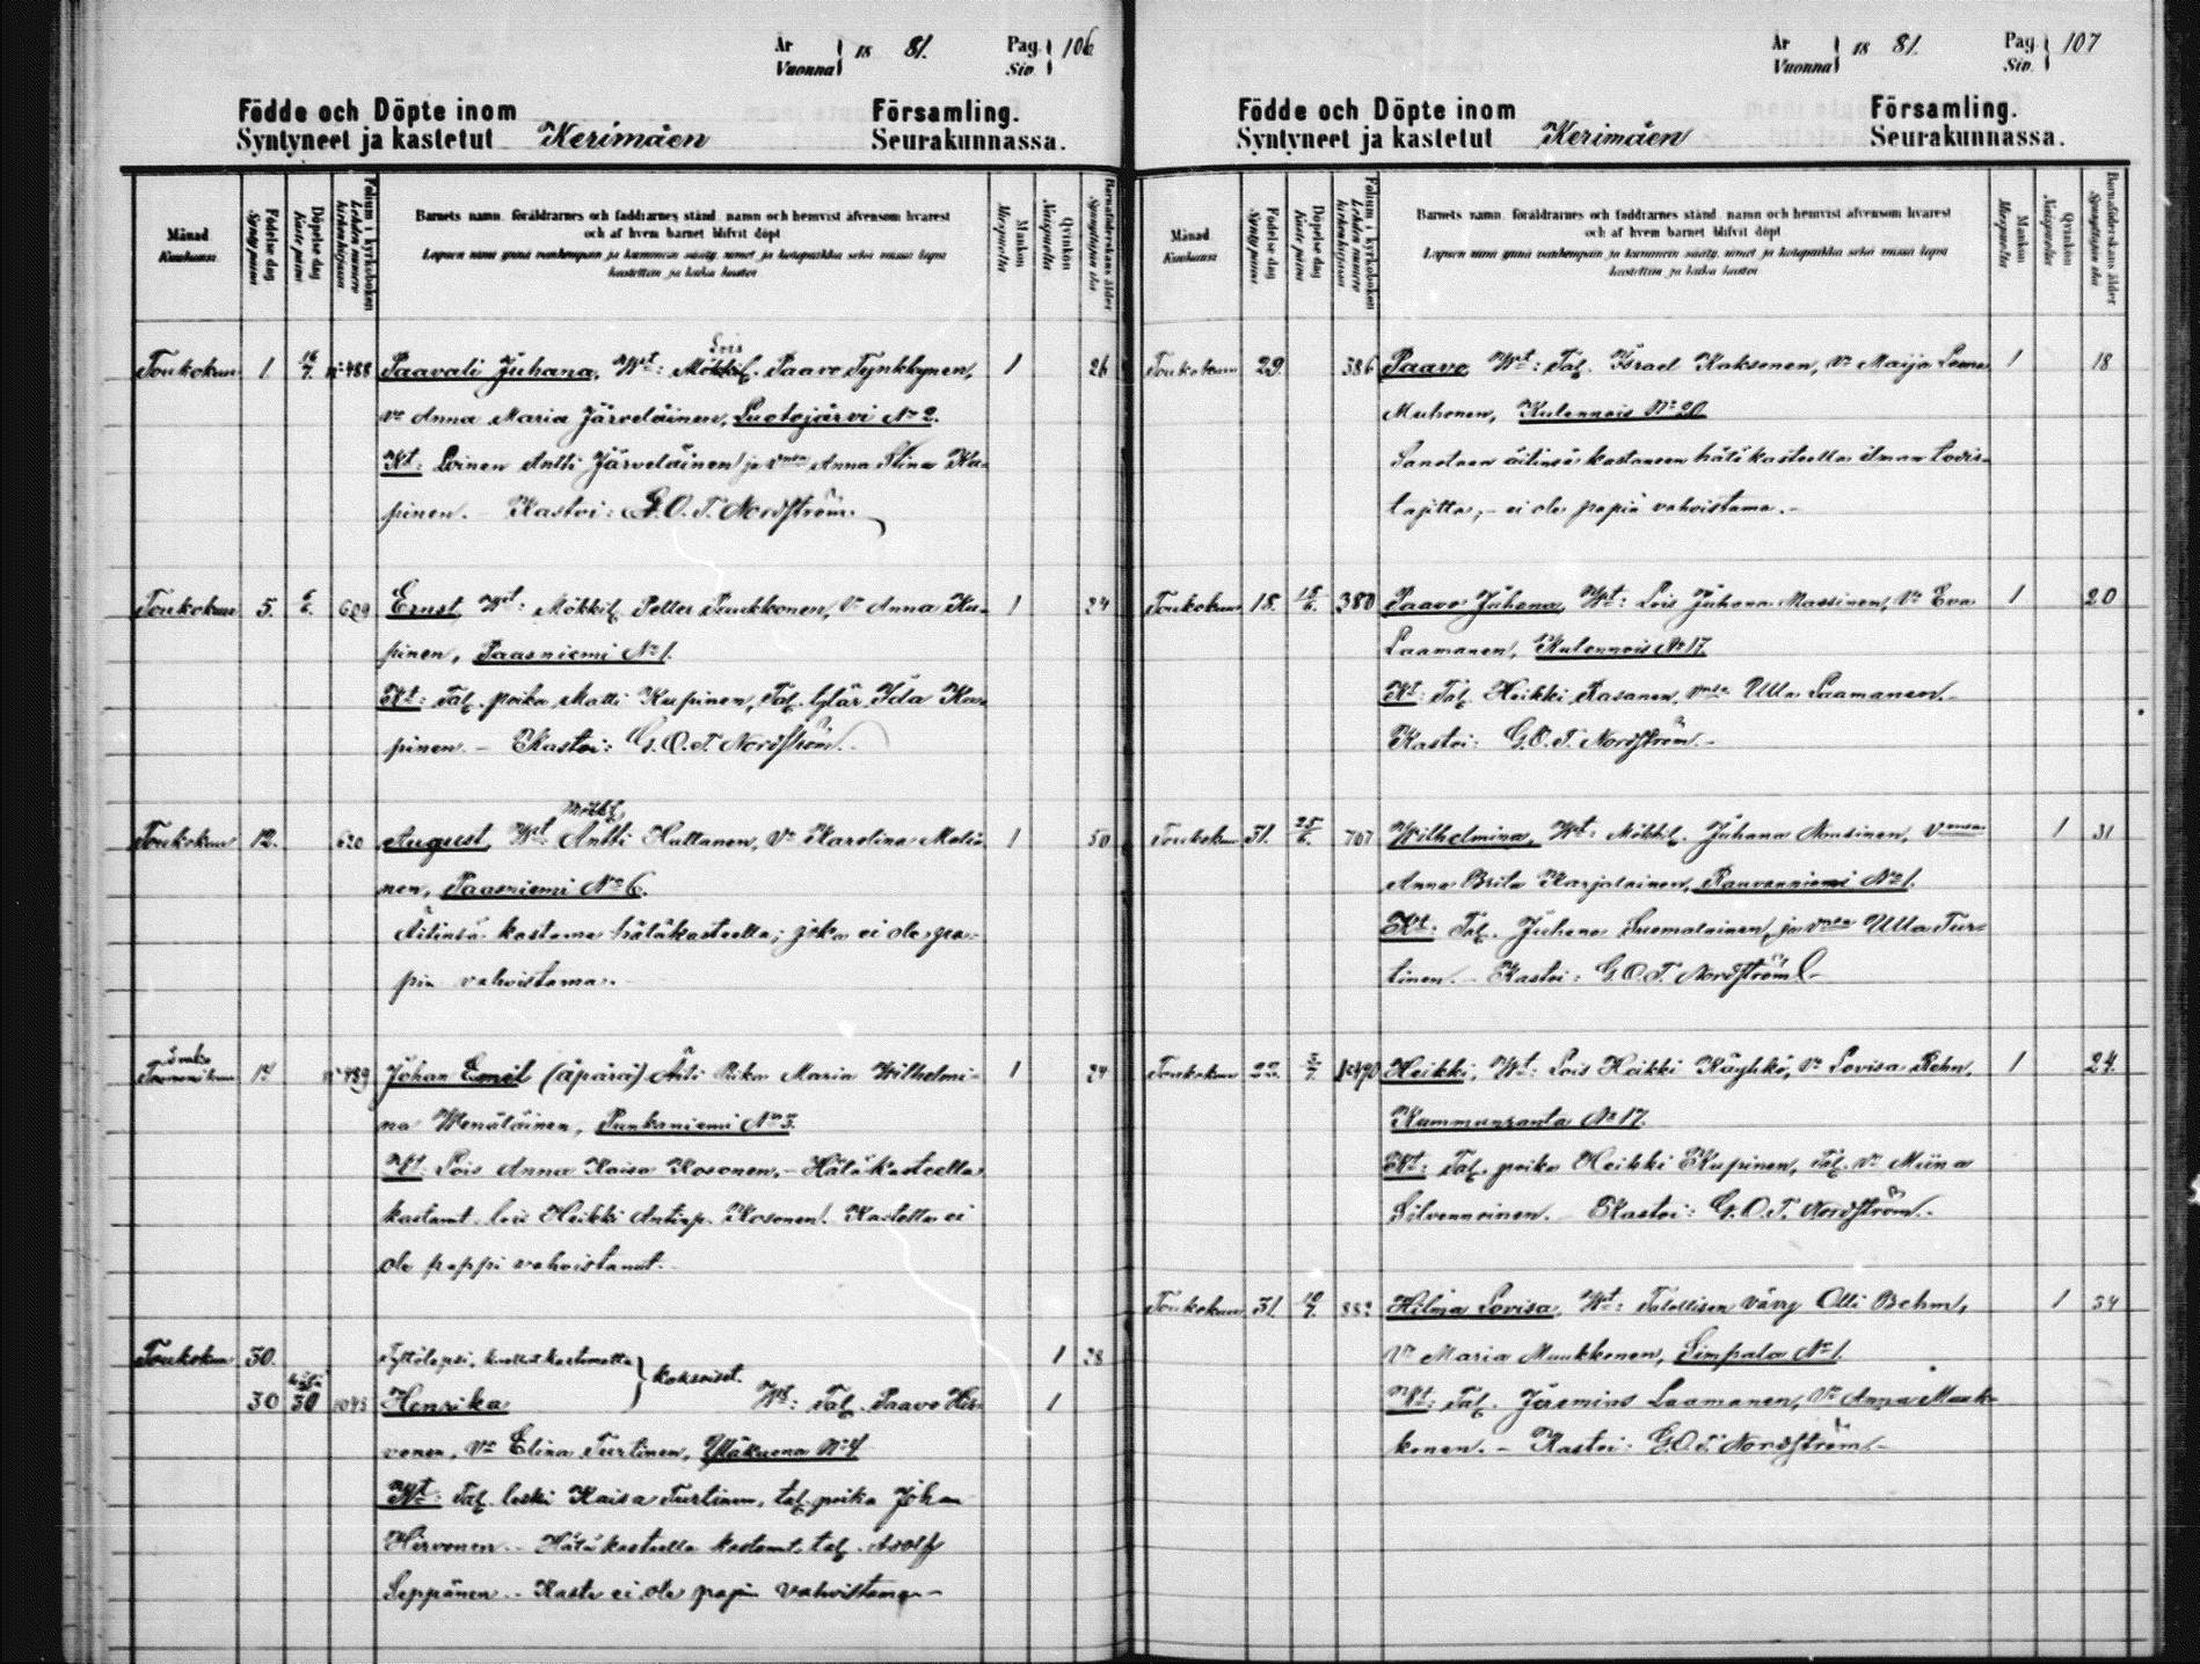 År Vuonna 18 81. Pag. Siv. 106
Födde och Döpte inom Församling.
Syntyneet ja kastetut Kerimäen Seurakunnassa.
Månad Kuukausi
Födelse dag Synty päivä
Döpelse dag Kaste päivä
Folium i kyrkoboken Lehden numero kirkonkirjassa
Barnets namn, föräldrarnes och faddrarnes stånd, namn och hemvist äfvensom hvarest
och af hvem barnet blifvit döpt
Lapsen nimi ynnä vanhempain ja kummien sääty, nimet ja kotopaikka sekä missä lapsi
kastettiin ja kuka kastoi
Mankön Miespuolia
Qvinkön Naispuolia
Barnaföderskans ålder Synnyttäjän ikä
Lois
Toukokuu 1. 16/7. 488 Paavali Juhana, Wst: Paavo Tynkkynen, 1 26
vo Anna Maria Järveläinen, Luotojärvi No 2.
Kt: Loinen Antti Järveläinen ja vmsa Anna Stina Ku-
pinen. Kastoi: G.O.T. Nordström.
Toukokuu 5. 6/6. 609 Ernst, Wst: Mökkil. Petter Puukkonen, Vo Anna Ku- 1 24
pinen, Paasniemi No 1.
Kt: Tal. poika Matti Kupinen, Tal. tytär Ida Ku-
pinen. - Kastoi: G.O.T. Nordström.
Mökkil.
Toukokuu 12. 620 August, Wst Antti Hultanen, Vo Karolina 1 50
nen, Paasniemi No 6.
Äitinsä kastama hätäkasteella; joka ei ole pa-
pin vahvistama.
14 489 Johan Emil (äpärä) Äiti Piika Maria Wilhelmi- 1 24
na Wenäläinen, Punkaniemi No 3.
Kt: Lois Anna Kaisa Kosonen. - Hätäkasteella
kastanut lois Heikki Antinp. Kosonen. Kastetta ei
ole pappi vahvistanut.
Toukokuu 30. Tyttölapsi, kuollut kastamatta 1 38
30 30 1043 Henrika kaksoiset. Wst: Tal. Paavo Hir- 1
vonen, Vo Elina Turtinen, Yläkuona No 4
Kt: Tal. leski Kaisa Turtinen, tal. poika Johan
Hirvonen. - Hätäkasteella kastanut tal. Adolf
Seppänen. - Kaste ei ole papin vahvistama -
År Vuonna 18 81. Pag. Siv. 107
Födde och Döpte inom Församling.
Syntyneet ja kastetut Kerimäen Seurakunnassa.
Månad Kuukausi
Födelse dag Synty päivä
Döpelse dag Kaste päivä
Folium i kyrkoboken Lehden numero kirkonkirjassa
Barnets namn, föräldrarnes och faddrarnes stånd, namn och hemvist äfvensom hvarest
och af hvem barnet blifvit döpt
Lapsen nimi ynnä vanhempain ja kummien sääty, nimet ja kotopaikka sekä missä lapsi
kastettiin ja kuka kastoi
Mankön Miespuolia
Qvinkön Naispuolia
Barnaföderskans ålder Synnyttäjän ikä
Toukokuu 29. 386 Paavo, Wst: Tal. Israel Kaksonen, Vo Maija Leena 1 18
Muhonen, Kulennois No 20
Sanotaan äitinsä kastaneen hätäkasteella ilman todis-
tajitta, - ei ole papin vahvistama. -
Toukokuu 18. 18/6. 380 Paavo Juhana, Wst: Lois Juhana Massinen, Vo Eva 1 20
Laamanen, Kulennois No 17.
Kt: Tal. Heikki Rasanen, vmsa Ulla Laamanen. -
Kastoi: G.O.T. Nordström. -
Toukokuu 31. 25/6. 707 Wilhelmina, Wst: Mökkil. Juhana Nousinen, Vmsa 1 31
Anna Brita Karjalainen, Rauvanniemi No 1.
Kt: Tal. Juhana Suomalainen, ja vmsa Ulla Tur-
tinen. - Kastoi: G.O.T. Nordström. -
Toukokuu 22. 3/7. 490 Heikki, Wst: Lois Heikki Käyhkö, Vo Lovisa Rehn, 1 24.
Kummunranta No 17.
Kt: Tal. poika Heikki Kupinen, Tal. Vo Miina
Silvennoinen. Kastoi: G.O.T. Nordström. -
Toukokuu 31. 10/7. 882 Hilma Lovisa, Wst: Talollisen vävy Olli Behm, 1 34
Vo Maria Muukkonen, Simpala No 1.
Kt: Tal. Jeremias Laamanen, Vo Anna Muuk-
konen. - Kastoi: G.O.T. Nordström. -